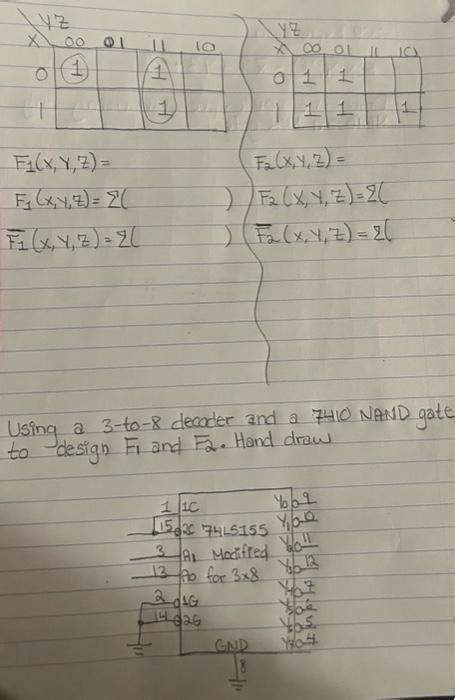 YZ
X 00 01 11 10
0 1 1
1 1
YZ
X 00 01 11 10
0 1 1
1 1 1 1
F1(X,Y,Z) =
F1(X,Y,Z) = Σ( )
F̅1(X,Y,Z) = Σ( )
F2(X,Y,Z) =
F2(X,Y,Z) = Σ(
F̅2(X,Y,Z) = Σ(
Using a 3-to-8 decoder and a 7410 NAND gate
to design F1 and F2. Hand draw
1 1C Y0 9
15 2C 74LS155 Y1 10
3 A1 Modified Y2 11
13 A0 for 3x8 Y3 12
2 1G Y4 7
14 2G Y5 6
Y6 5
GND Y7 4
8